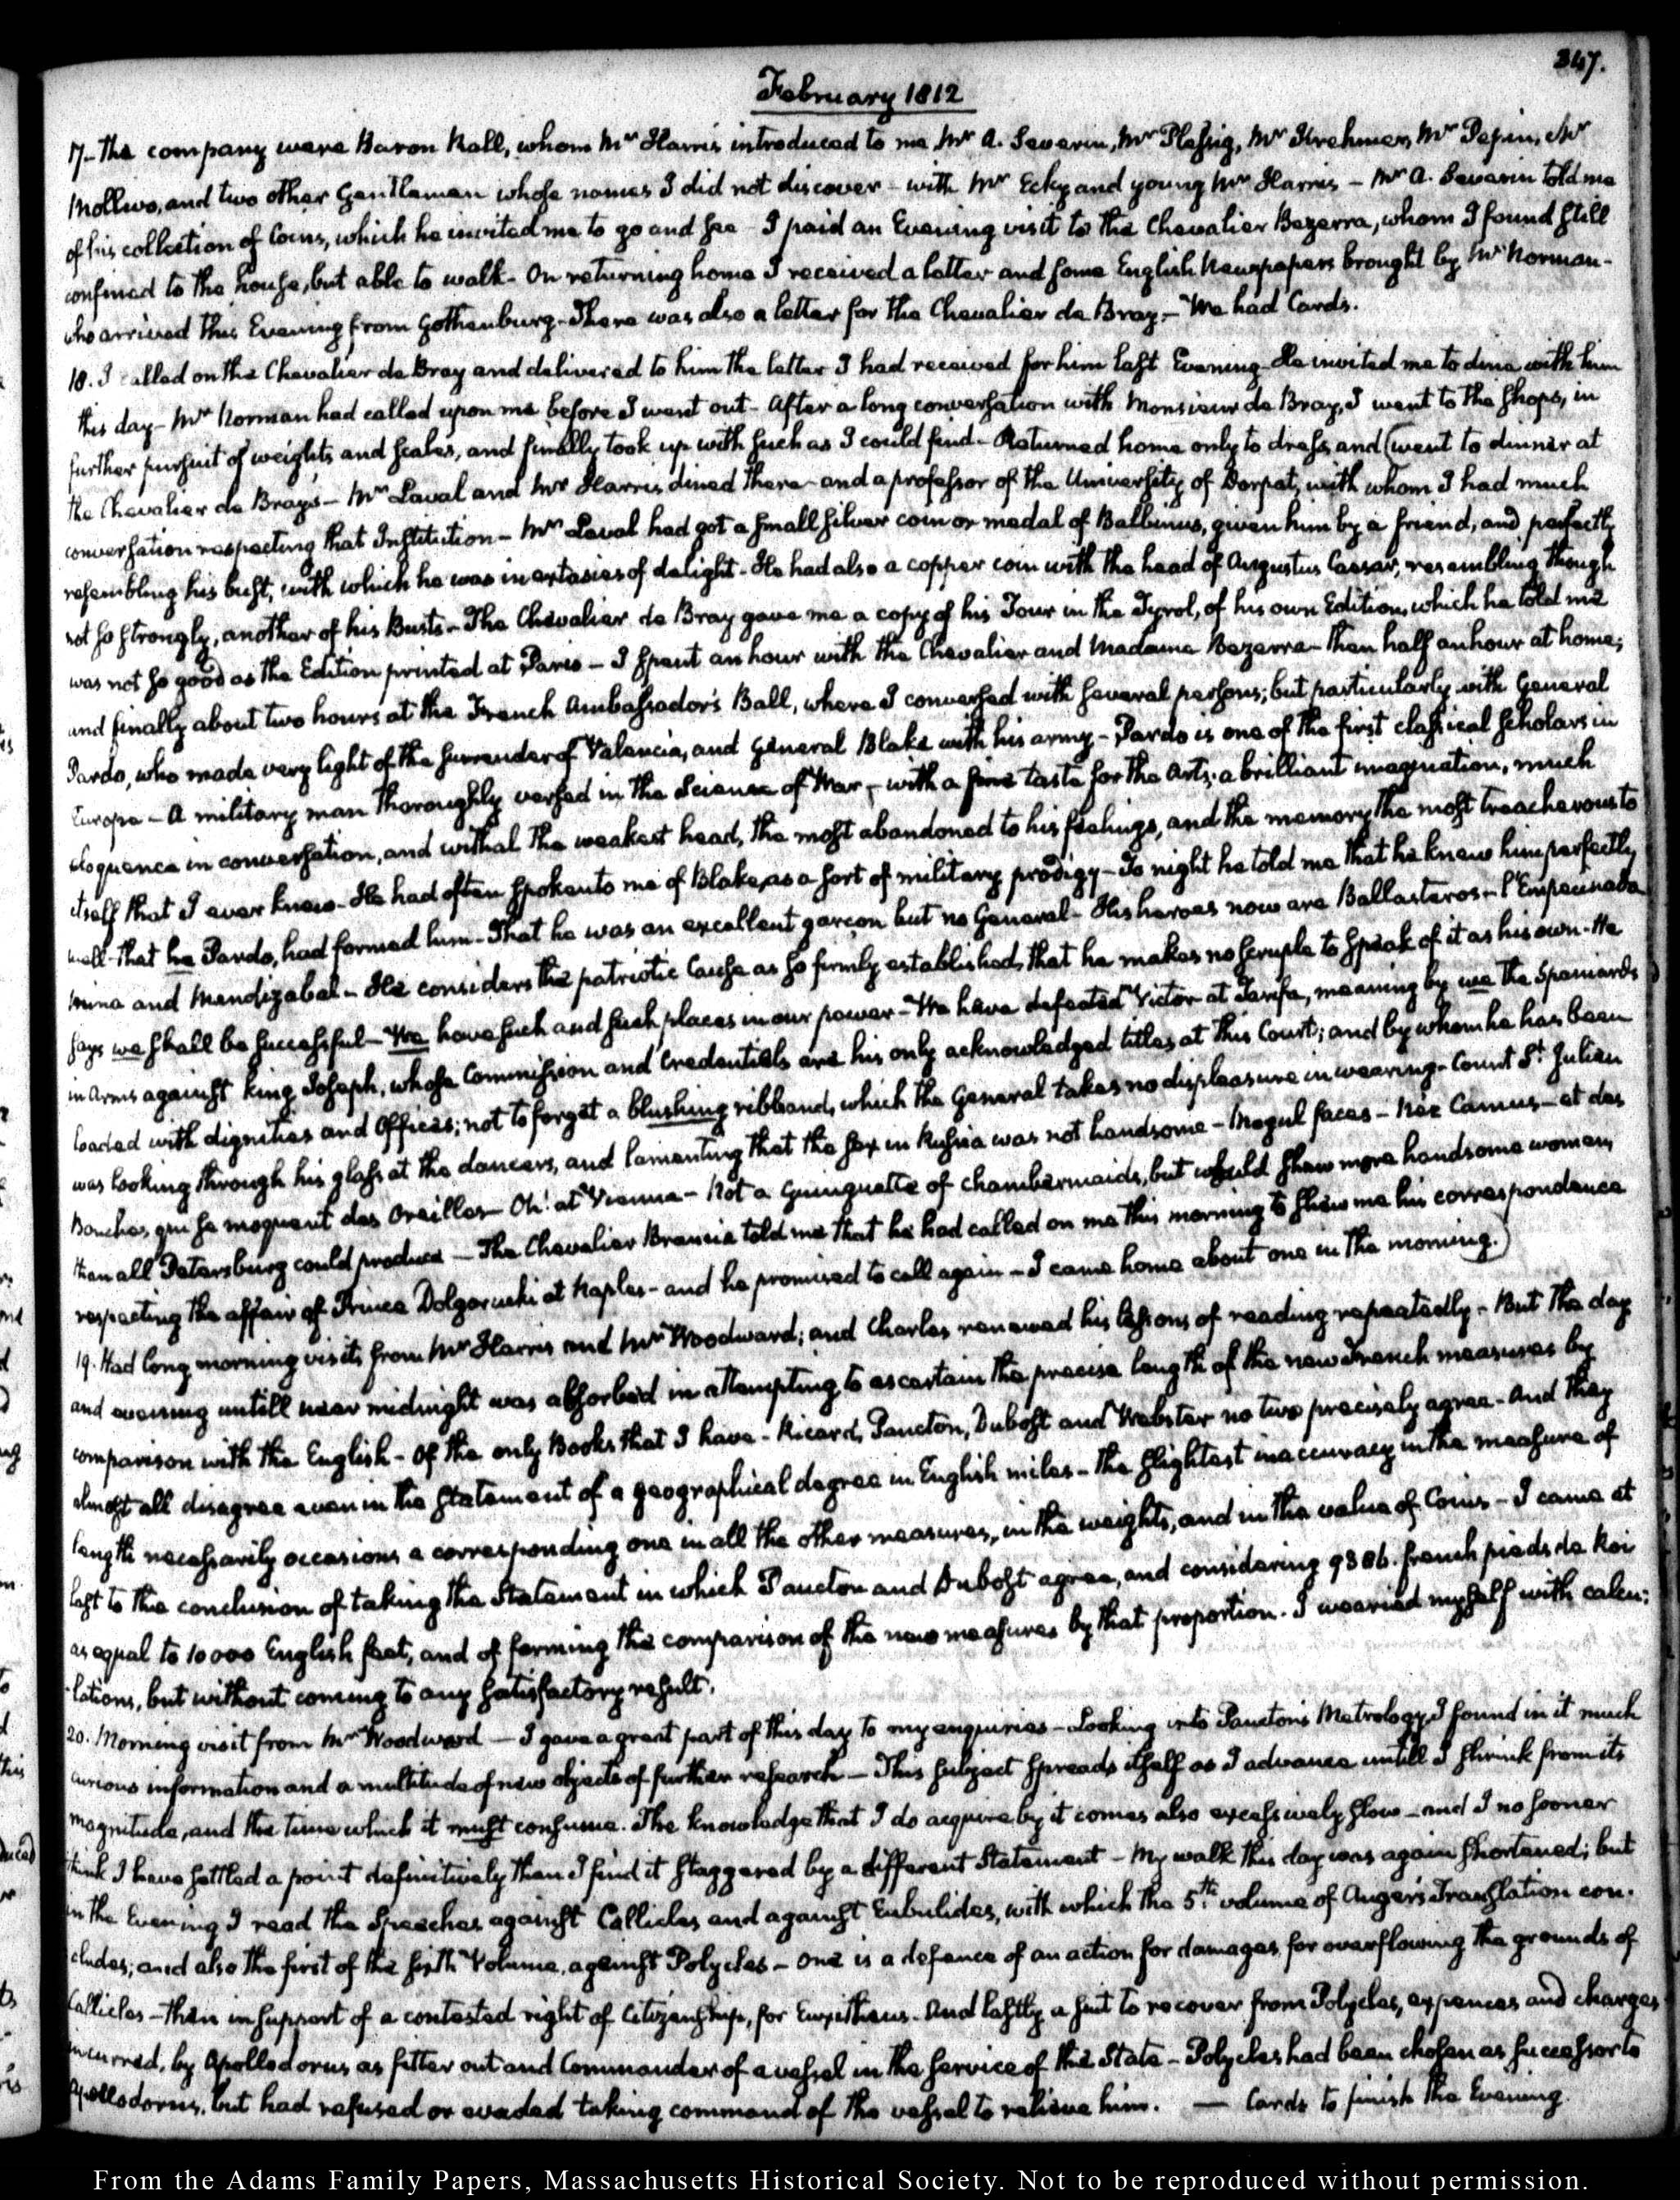 347.
February 1812
17. The company were Baron Rall, whom Mr Harris introduced to me, Mr A. Severin, Mr Plessig, Mr Krehmer, Mr Pepin, Mr
Mollwo, and two other Gentlemen whose names I did not discover - with Mr Ecky and young Mr Harris - Mr A. Severin told me
of his collection of Coins, which he invited me to go and see - I paid an Evening visit to the Chevalier Bezerra, whom I found still
confined to the house, but able to walk - On returning home I received a letter and some English Newspapers brought by Mr Norman -
who arrived this Evening from Gothenburg. There was also a letter for the Chevalier de Bray. - We had Cards.
18. I called on the Chevalier de Bray and delivered to him the letter I had received for him last Evening. He invited me to dine with him
this day - Mr Norman had called upon me before I went out - After a long conversation with Monsieur de Bray, I went to the shops, in
further pursuit of weights and scales, and finally took up with such as I could find - Returned home only to dress and (went to dinner at
the Chevalier de Bray's - Mr Laval and Mr Harris dined there - and a professor of the University of Dorpat, with whom I had much
conversation respecting that Institution - Mr Laval had got a small silver coin or medal of Balbinus, given him by a friend, and perfectly
resembling his bust, with which he was in extasies of delight - He had also a copper coin with the head of Augustus Caesar, resembling though
not so strongly, another of his Busts - The Chevalier de Bray gave me a copy of his Tour in the Tyrol, of his own Edition, which he told me
was not so good as the Edition printed at Paris - I spent an hour with the Chevalier and Madame Bezerra - then half an hour at home;
and finally about two hours at the French Ambassador's Ball, where I conversed with several persons; but particularly with General
Pardo, who made very light of the surrender of Valencia, and General Blake with his army - Pardo is one of the first classical scholars in
Europe - A military man thoroughly versed in the Science of War, - with a fine taste for the Arts; a brilliant imagination, much
eloquence in conversation, and withal the weakest head, the most abandoned to his feelings, and the memory the most treacherous to
itself that I ever knew - He had often spoken to me of Blake, as a sort of military prodigy - To night he told me that he knew him perfectly
well - that he Pardo, had formed him - That he was an excellent garçon but no General - His heroes now are Ballasteros - l'Empecinado
Mina and Mendizabal - He considers the patriotic Cause as so firmly established, that he makes no scruple to speak of it as his own - He
says we shall be successful - We have such and such places in our power - We have defeated Victor at Tarifa, meaning by we the Spaniards
in Arms against King Joseph, whose Commission and Credentials are his only acknowledged titles at this Court; and by whom he has been
loaded with dignities and Offices; not to forget a blushing ribband, which the General takes no displeasure in wearing - Count St Julien
was looking through his glass at the dancers, and lamenting that the sex in Russia was not handsome - Mogul faces - Néz Camus - et des
Bouches, qui se moquent des Oreilles - Oh! at Vienna - Not a Guinguette of chambermaids, but would shew more handsome women,
than all Petersburg could produce - The Chevalier Brancia told me that he had called on me this morning to shew me his correspondence
respecting the affair of Prince Dolgorucki at Naples - and he promised to call again - I came home about one in the morning.)
19. Had long morning visits from Mr Harris and Mr Woodward; and Charles renewed his lessons of reading repeatedly - But the day
and evening untill near midnight was absorbed in attempting to ascertain the precise length of the new French measures by
comparison with the English - Of the only Books that I have - Ricard, Paucton, Dubost and Webster no two precisely agree - And they
almost all disagree even in the statement of a geographical degree in English miles - The slightest inaccuracy in the measure of
length necessarily occasions a corresponding one in all the other measures, in the weights, and in the value of Coins - I came at
last to the conclusion of taking the Statement in which Paucton and Dubost agree, and considering 9386. french pieds de Roi
as equal to 10000 English feet, and of forming the comparison of the new measures by that proportion. I wearied myself with calcu:
:lations, but without coming to any satisfactory result.
20. Morning visit from Mr Woodward - I gave a great part of this day to my enquiries - Looking into Paucton's Metrology, I found in it much
curious information and a multitude of new objects of further research - This subject spreads itself as I advance untill I shrink from its
magnitude, and the time which it must consume. The knowledge that I do acquire by it comes also excessively slow - and I no sooner
think I have settled a point definitively than I find it staggered by a different Statement - My walk this day was again shortened; but
in the Evening I read the Speeches against Callicles and against Eubulides, with which the 5th volume of Auger's Translation con-
cludes; and also the first of the sixth Volume, against Polycles - One is a defence of an action for damages for overflowing the grounds of
Callicles - then in support of a contested right of Citizenship, for Euxitheus. And lastly a suit to recover from Polycles, expences and charges
incurred, by Apollodorus as fitter out and Commander of a vessel in the service of the State - Polycles had been chosen as successor to
Apollodorus, but had refused or evaded taking command of the vessel to relieve him. - Cards to finish the Evening.
From the Adams Family Papers, Massachusetts Historical Society. Not to be reproduced without permission.